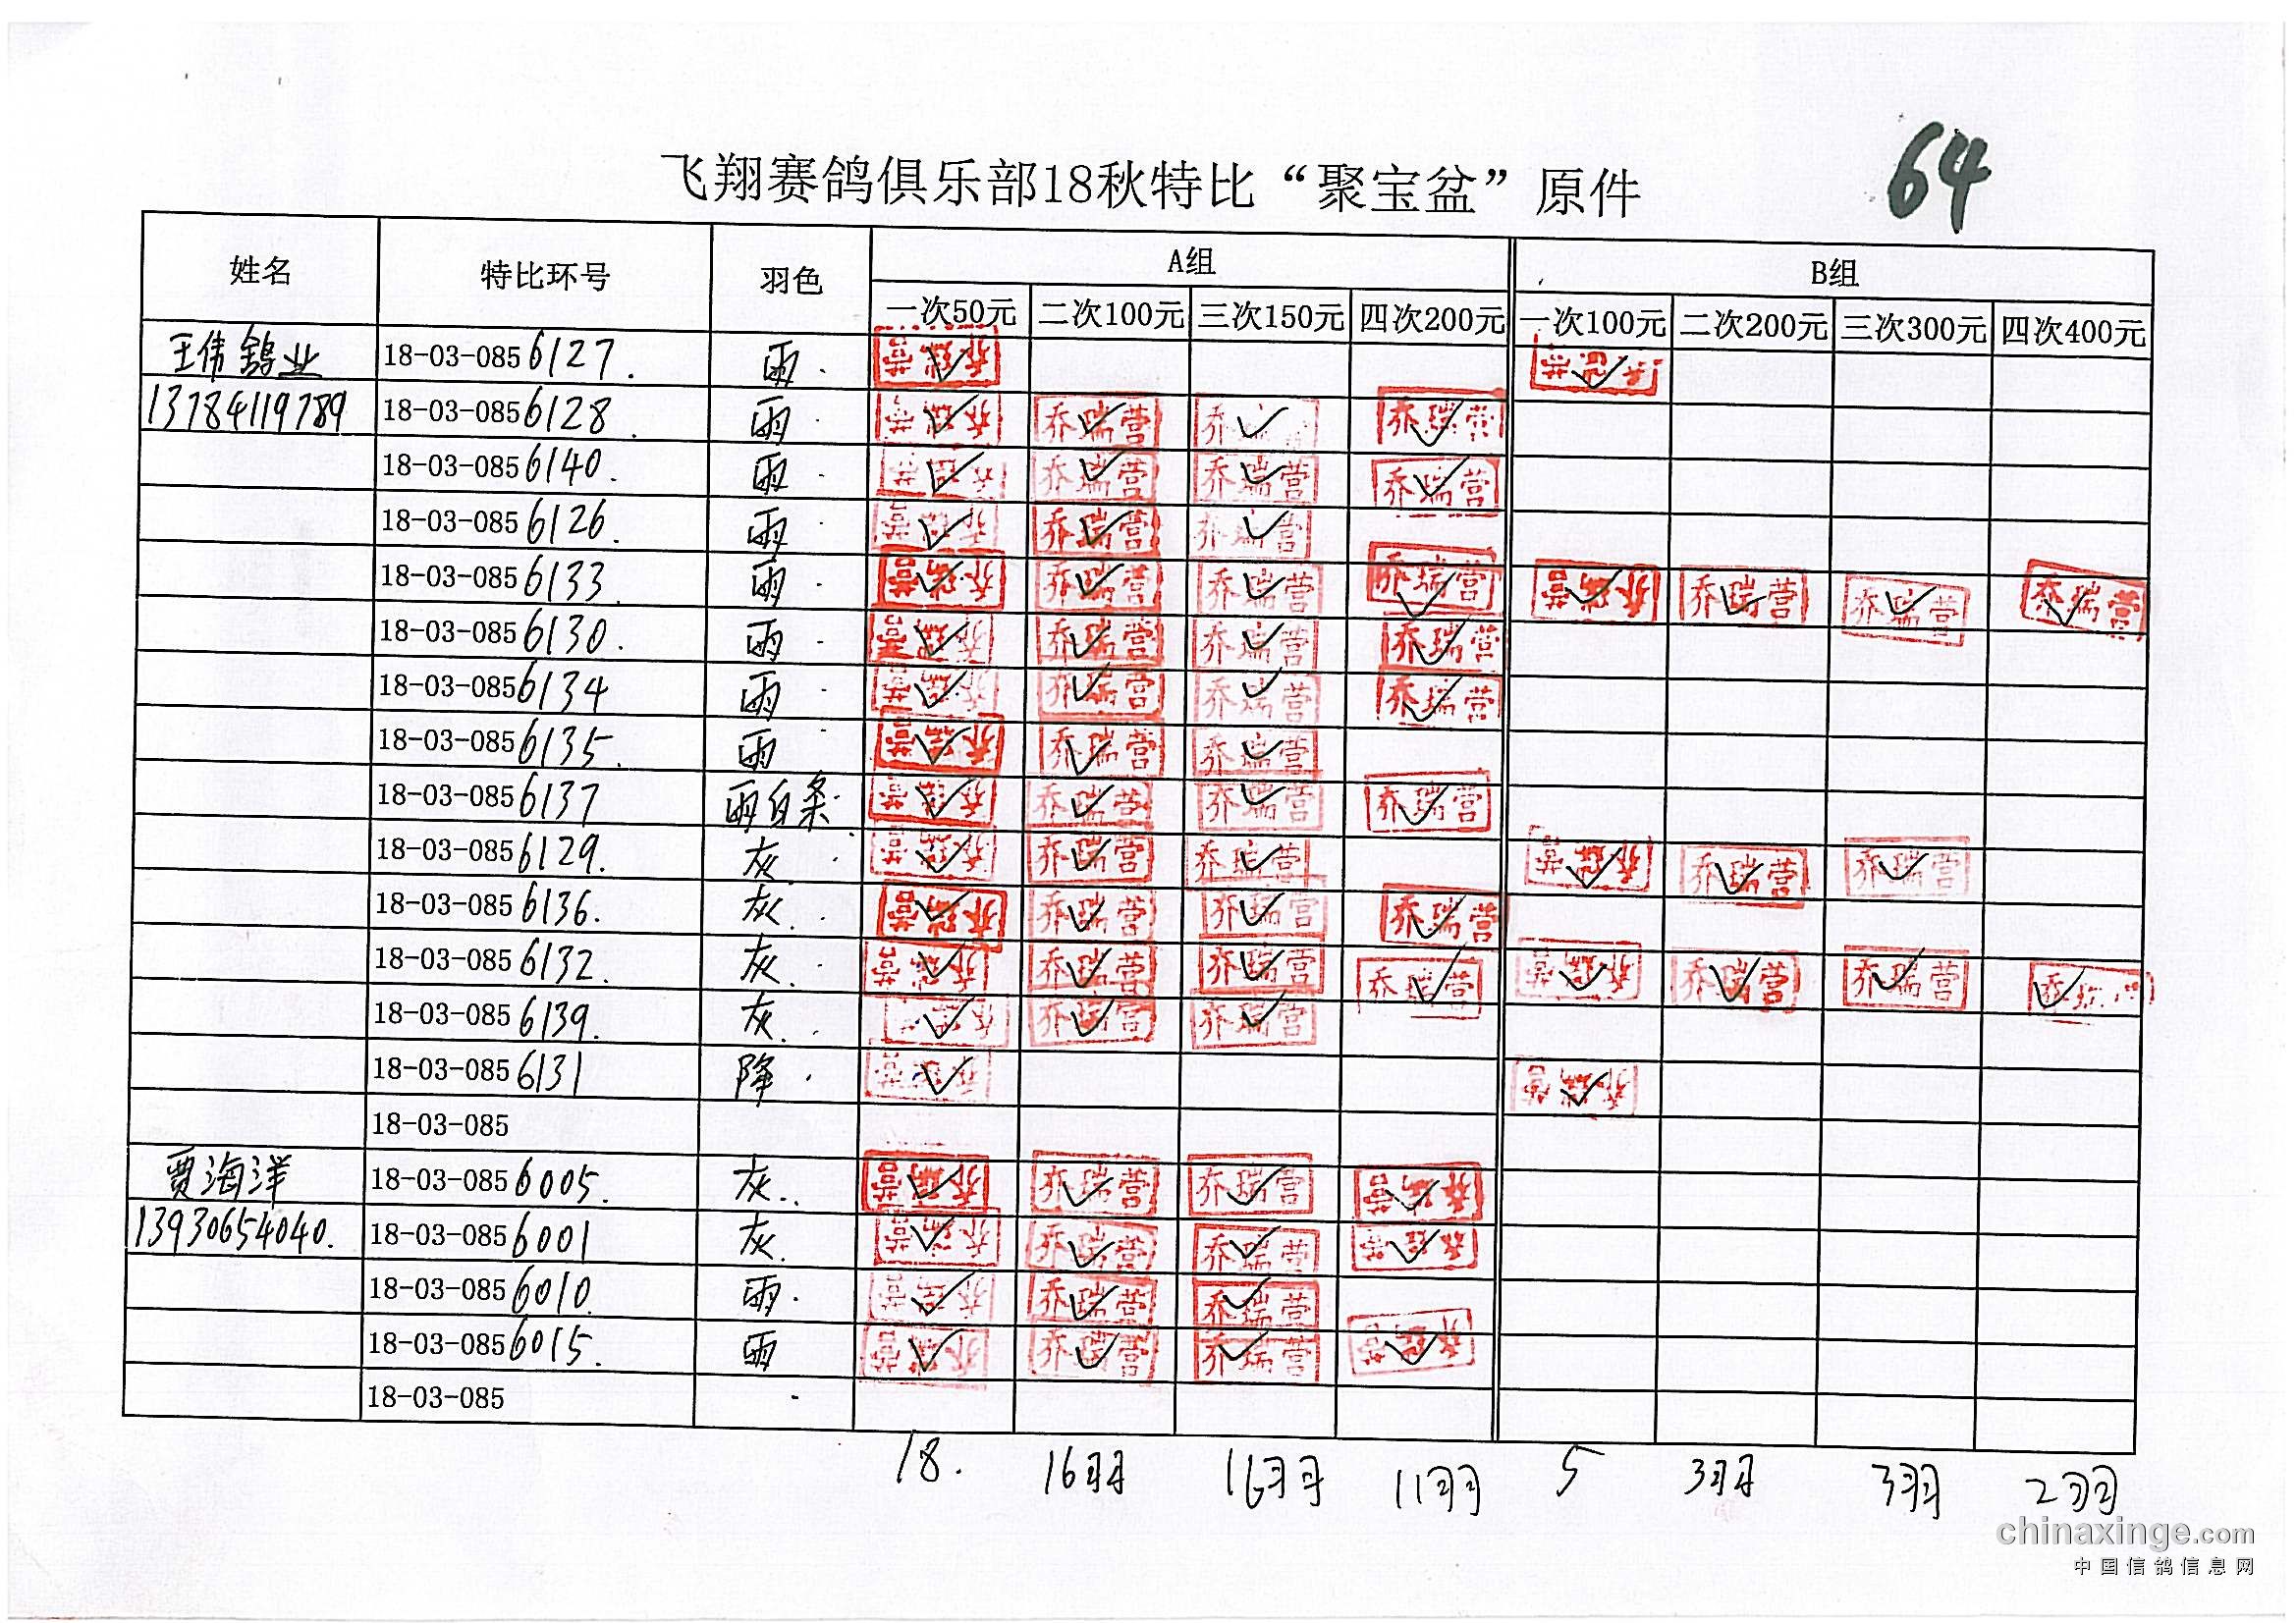 飞翔赛鸽俱乐部18秋特比“聚宝盆”原件 64
姓名 特比环号 羽色 A组 B组
一次50元 二次100元 三次150元 四次200元 一次100元 二次200元 三次300元 四次400元
王伟鸽业 18-03-085 6127. 雨. ✓ ✓
13784119789 18-03-085 6128. 雨. ✓ 乔瑞营 ✓ 乔 ✓ 乔瑞营 ✓
18-03-085 6140. 雨. ✓ 乔瑞营 ✓ 乔瑞营 ✓ 乔瑞营 ✓
18-03-085 6126. 雨. ✓ 乔瑞营 ✓ 乔瑞营 ✓
18-03-085 6133. 雨. 乔瑞营 ✓ 乔瑞营 ✓ 乔瑞营 ✓ 乔瑞营 ✓ 乔瑞营 ✓ 乔瑞营 ✓ 乔瑞营 ✓ 乔瑞营 ✓
18-03-085 6130. 雨. ✓ 乔瑞营 ✓ 乔瑞营 ✓ 乔瑞营 ✓
18-03-085 6134 雨. ✓ 乔瑞营 ✓ 乔瑞营 ✓ 乔瑞营 ✓
18-03-085 6135. 雨 乔瑞营 ✓ 乔瑞营 ✓ 乔瑞营 ✓
18-03-085 6137 雨白条. ✓ 乔瑞营 ✓ 乔瑞营 ✓ 乔瑞营 ✓
18-03-085 6129. 灰. ✓ 乔瑞营 ✓ 乔瑞营 ✓ ✓ 乔瑞营 ✓ 乔瑞营 ✓
18-03-085 6136. 灰. 乔瑞营 ✓ 乔瑞营 ✓ 乔瑞营 ✓ 乔瑞营 ✓
18-03-085 6132. 灰. ✓ 乔瑞营 ✓ 乔瑞营 ✓ 乔瑞营 ✓ ✓ 乔瑞营 ✓ 乔瑞营 ✓ ✓
18-03-085 6139. 灰. ✓ 乔瑞营 ✓ 乔瑞营 ✓
18-03-085 6131 降. ✓ ✓
18-03-085
贾海洋 18-03-085 6005. 灰.. 乔瑞营 ✓ 乔瑞营 ✓ 乔瑞营 ✓ 乔瑞营 ✓
13930654040. 18-03-085 6001 灰. ✓ 乔瑞营 ✓ 乔瑞营 ✓ ✓
18-03-085 6010. 雨. ✓ 乔瑞营 ✓ 乔瑞营 ✓
18-03-085 6015. 雨 ✓ 乔瑞营 ✓ 乔瑞营 ✓ ✓
18-03-085
18. 16 16 11 5 3 3 2
chinaxinge.com
中国信鸽信息网